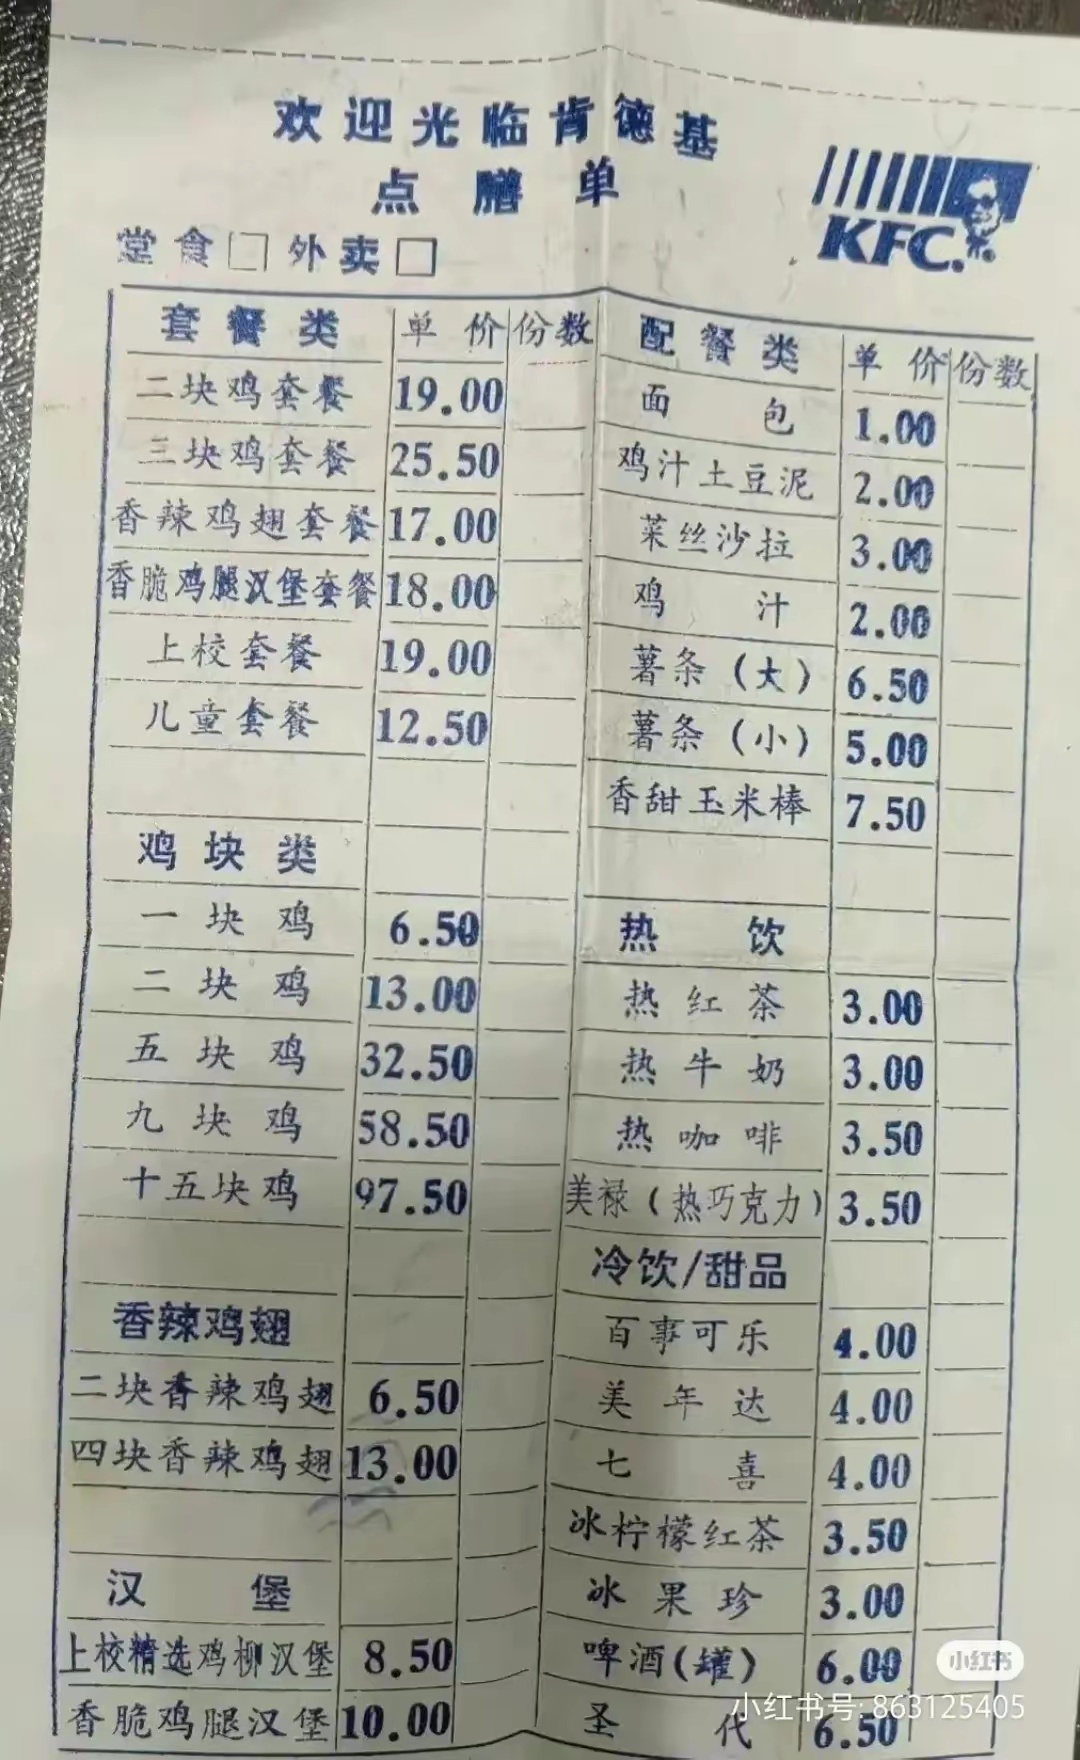 欢迎光临肯德基
点膳单
KFC.
堂食□ 外卖□
套餐类 单价 份数
二块鸡套餐 19.00
三块鸡套餐 25.50
香辣鸡翅套餐 17.00
香脆鸡腿汉堡套餐 18.00
上校套餐 19.00
儿童套餐 12.50
鸡块类
一块鸡 6.50
二块鸡 13.00
五块鸡 32.50
九块鸡 58.50
十五块鸡 97.50
香辣鸡翅
二块香辣鸡翅 6.50
四块香辣鸡翅 13.00
汉堡
上校精选鸡柳汉堡 8.50
香脆鸡腿汉堡 10.00
配餐类 单价 份数
面包 1.00
鸡汁土豆泥 2.00
菜丝沙拉 3.00
鸡汁 2.00
薯条(大) 6.50
薯条(小) 5.00
香甜玉米棒 7.50
热饮
热红茶 3.00
热牛奶 3.00
热咖啡 3.50
美禄(热巧克力) 3.50
冷饮/甜品
百事可乐 4.00
美年达 4.00
七喜 4.00
冰柠檬红茶 3.50
冰果珍 3.00
啤酒(罐) 6.00
圣代 6.50
小红书
小红书号: 863125405